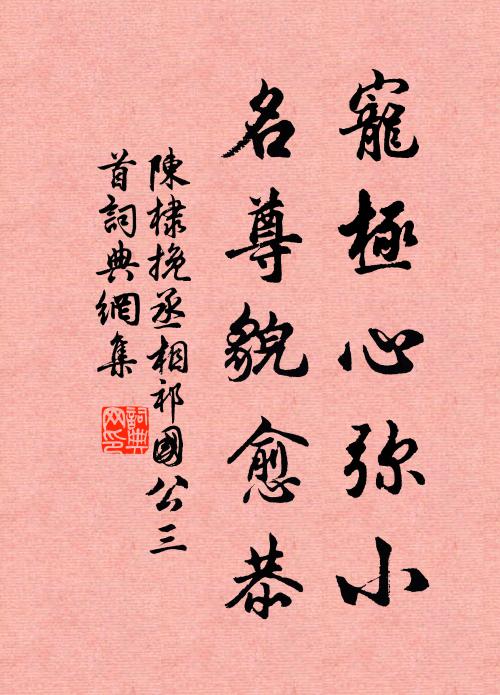 寵極心弥小
名尊貌愈恭
陳棣挽丞相祁國公三
首詞典網集
詞典网印